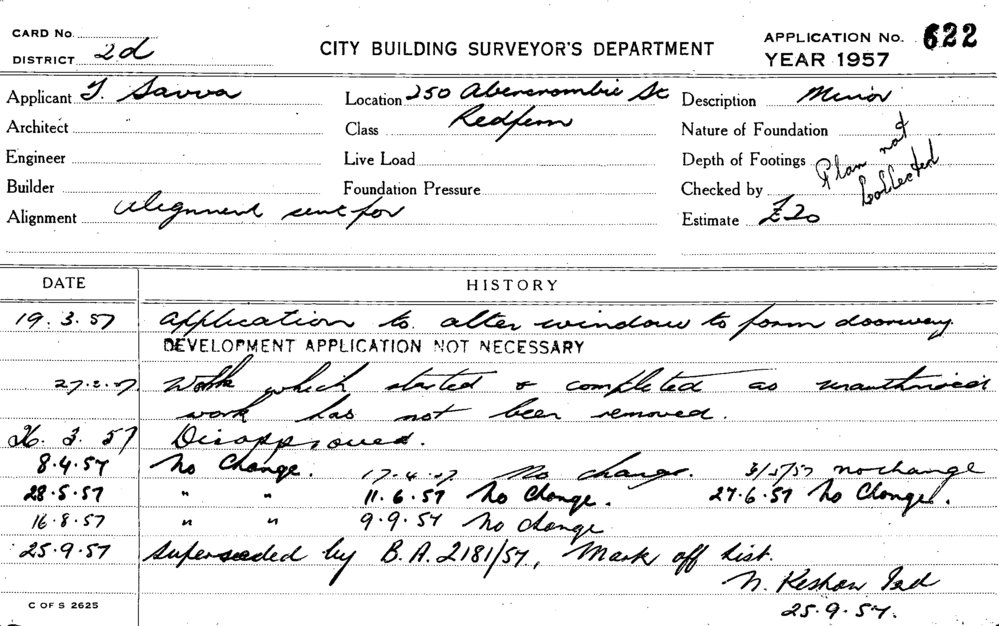 CARD No.
DISTRICT 2d
CITY BUILDING SURVEYOR'S DEPARTMENT
APPLICATION No. 622
YEAR 1957
Applicant T. Savva
Location 250 Abercrombie St
Description Minor
Architect
Class Redfern
Nature of Foundation
Engineer
Live Load
Depth of Footings
Plan not
Collected
Builder
Foundation Pressure
Checked by
Alignment Alignment sent for
Estimate £20
DATE HISTORY
19.3.57 Application to alter window to form doorway.
DEVELOPMENT APPLICATION NOT NECESSARY
Work which started & completed as unauthorised
work has not been removed.
26.3.57 Disapproved.
8.4.57 No Change. 17.4.57 No change. 3/5/57 no change
28.5.57 " " 11.6.57 No Change. 27.6.57 No Change.
16.8.57 " " 9.9.57 No change
25.9.57 Superseded by B.A. 2181/57, Mark off List.
N.
25.9.57.
C OF S 2625